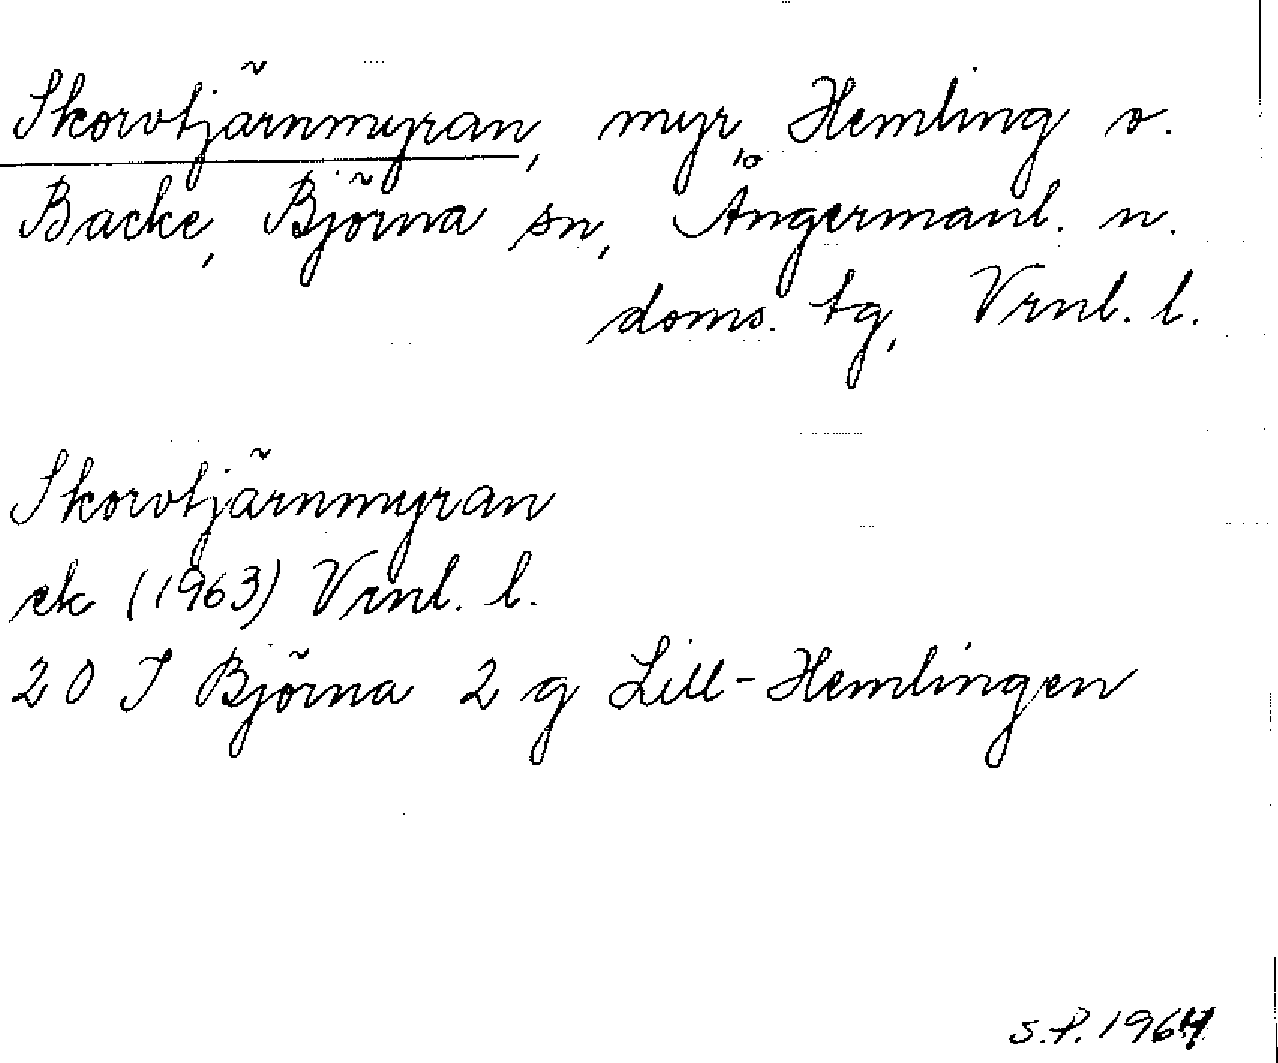 Skorvtjärnmyran, myr, Hemling o.
Backe, Björna sn, Ångermanl. n.
doms. tg, Vrnl. l.
Skorvtjärnmyran
ek (1963) Vrnl. l.
20 I Björna 2 g Lill-Hemlingen
S.P. 1964